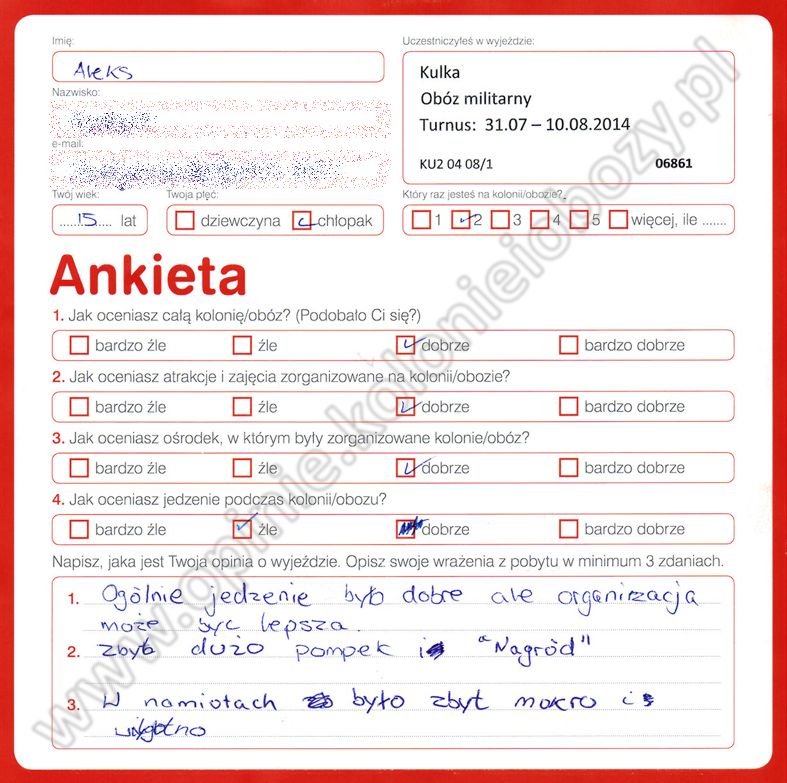 Imię:
Uczestniczyłeś w wyjeździe:
Aleks
Kulka
Obóz militarny
Turnus: 31.07 – 10.08.2014
KU2 04 08/1 06861
Nazwisko:
e-mail:
Twój wiek:
Twoja płęć:
Który raz jesteś na kolonii/obozie?
15 lat
dziewczyna chłopak
1 2 3 4 5 więcej, ile .......
Ankieta
1. Jak oceniasz całą kolonię/obóz? (Podobało Ci się?)
bardzo źle źle dobrze bardzo dobrze
2. Jak oceniasz atrakcje i zajęcia zorganizowane na kolonii/obozie?
bardzo źle źle dobrze bardzo dobrze
3. Jak oceniasz ośrodek, w którym były zorganizowane kolonie/obóz?
bardzo źle źle dobrze bardzo dobrze
4. Jak oceniasz jedzenie podczas kolonii/obozu?
bardzo źle źle dobrze bardzo dobrze
Napisz, jaka jest Twoja opinia o wyjeździe. Opisz swoje wrażenia z pobytu w minimum 3 zdaniach.
1. Ogólnie jedzenie było dobre ale organizacja
może być lepsza.
2. zbyt dużo pompek i "Nagród"
3. W namiotach było zbyt mokro i
www.opinie.kolonieiobozy.pl